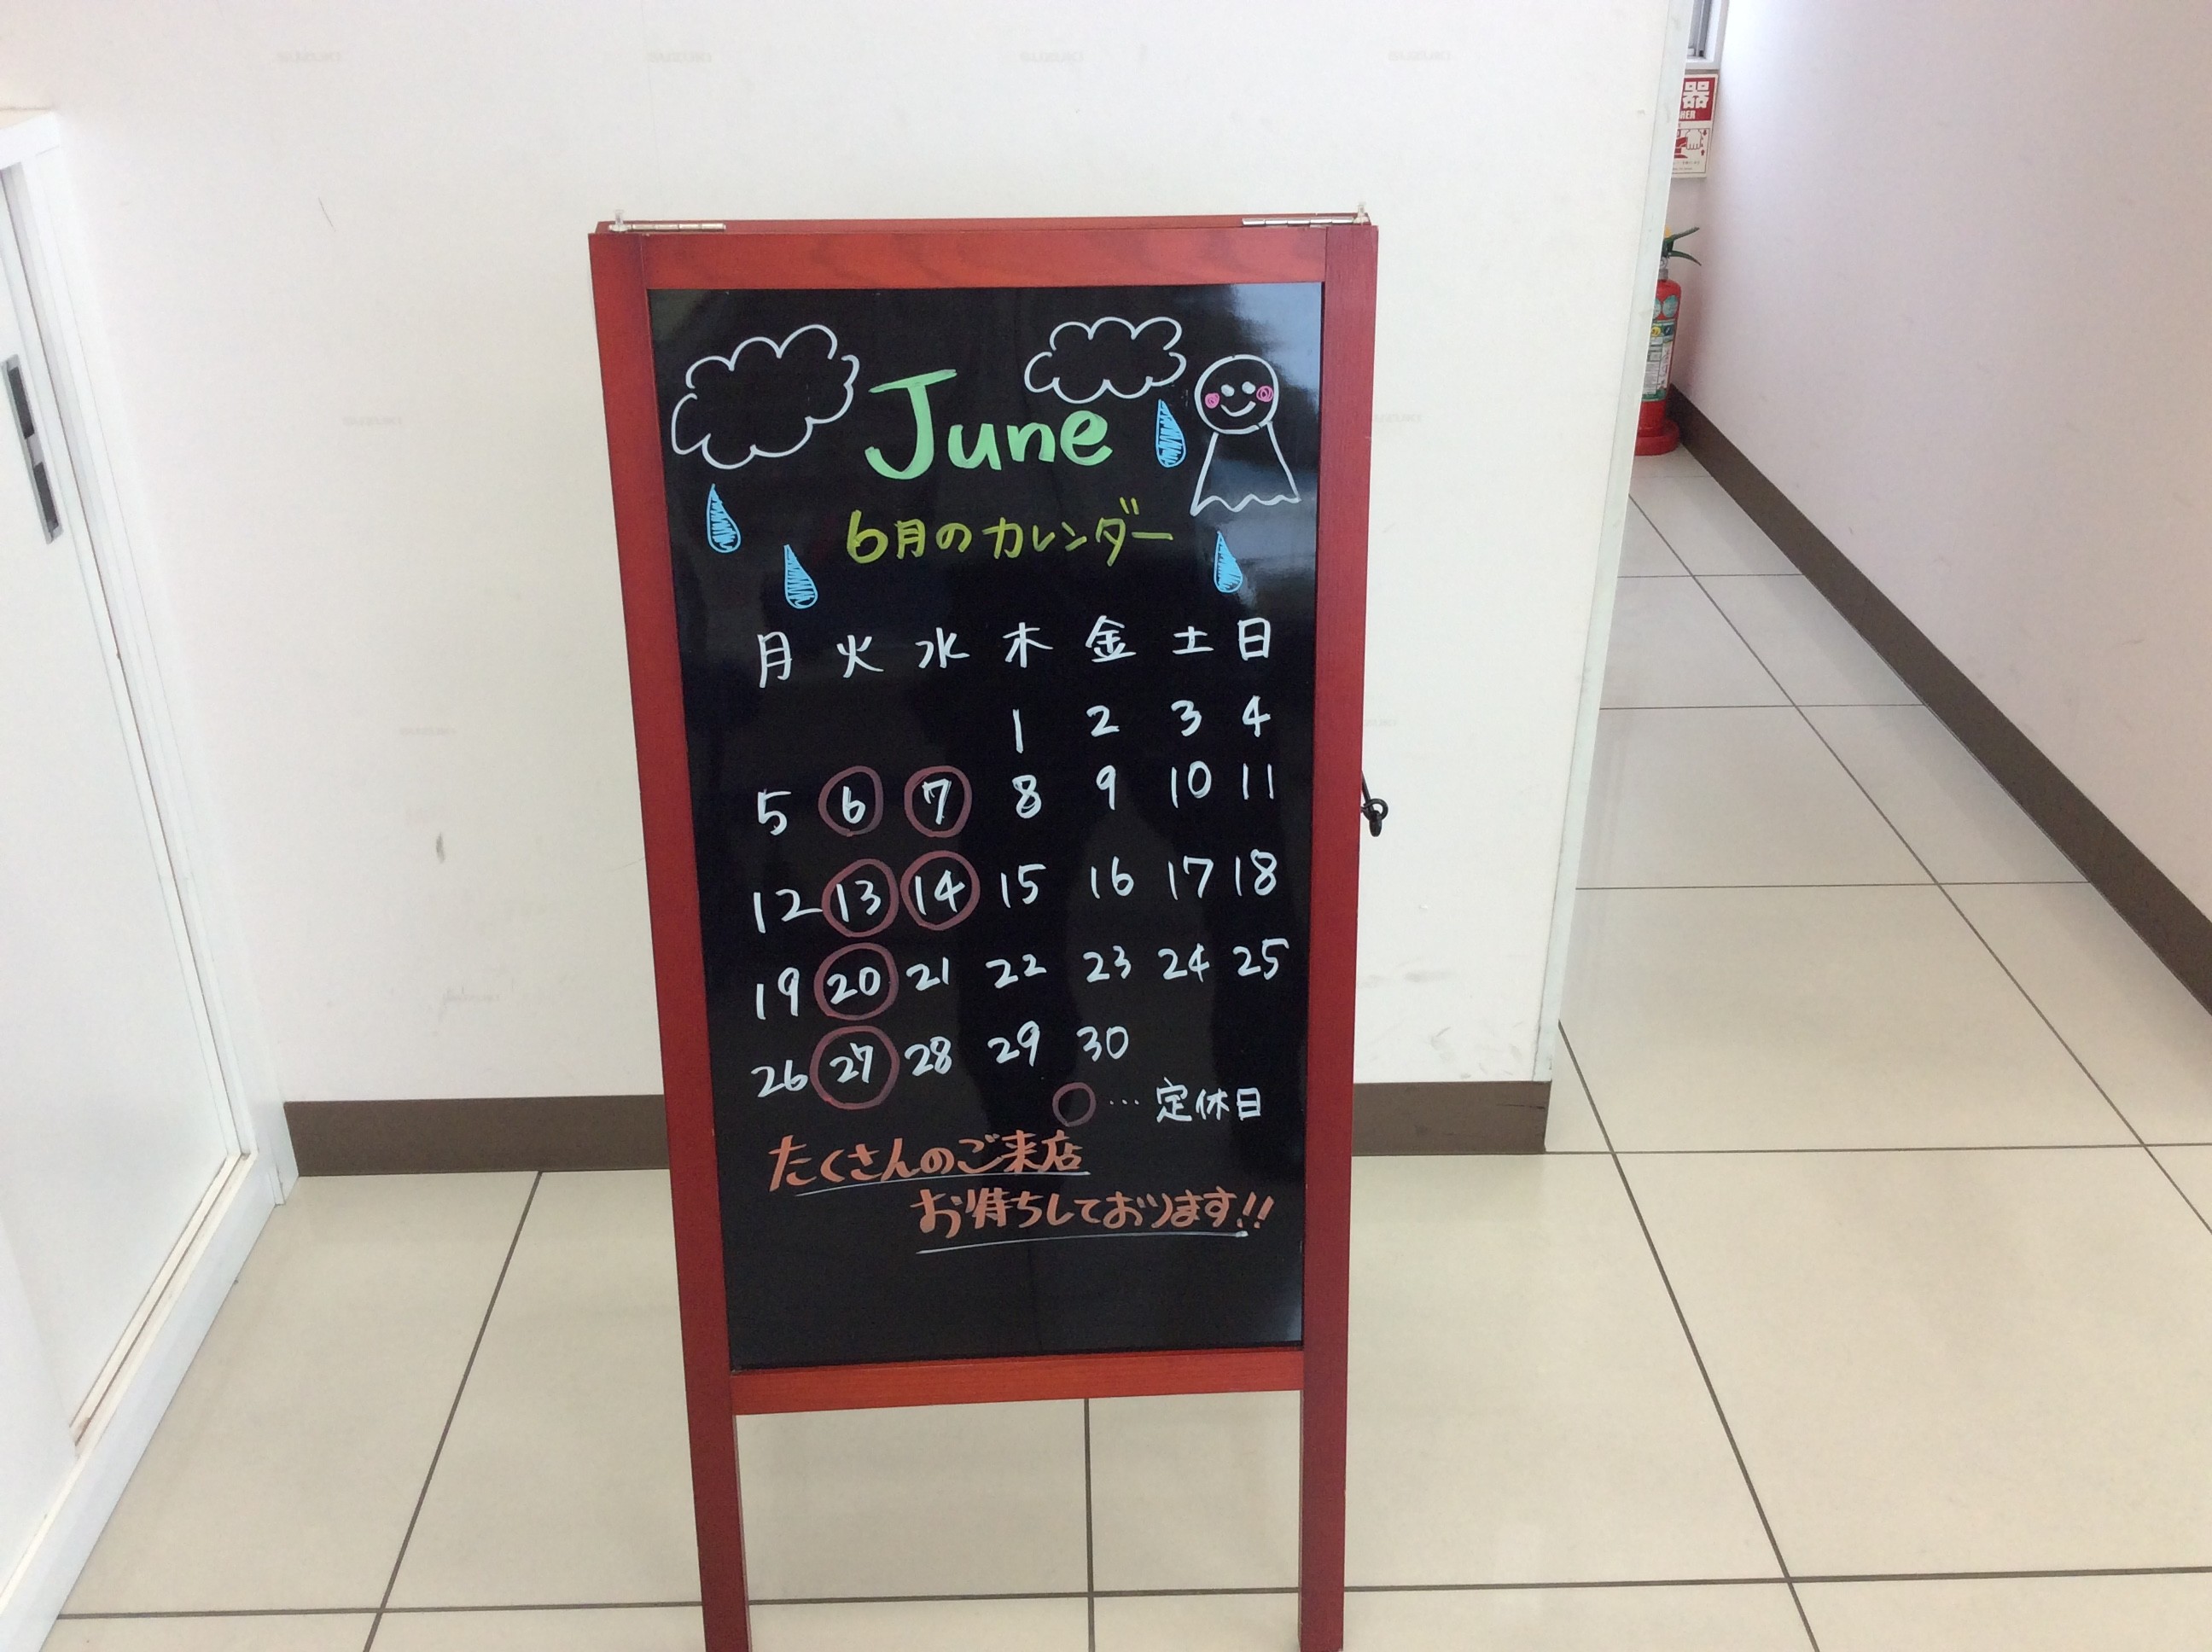 器
HER
June
6月のカレンダー
月 火 水 木 金 土 日
1 2 3 4
5 6 7 8 9 10 11
12 13 14 15 16 17 18
19 20 21 22 23 24 25
26 27 28 29 30
○… 定休日
たくさんのご来店
お待ちしております!!